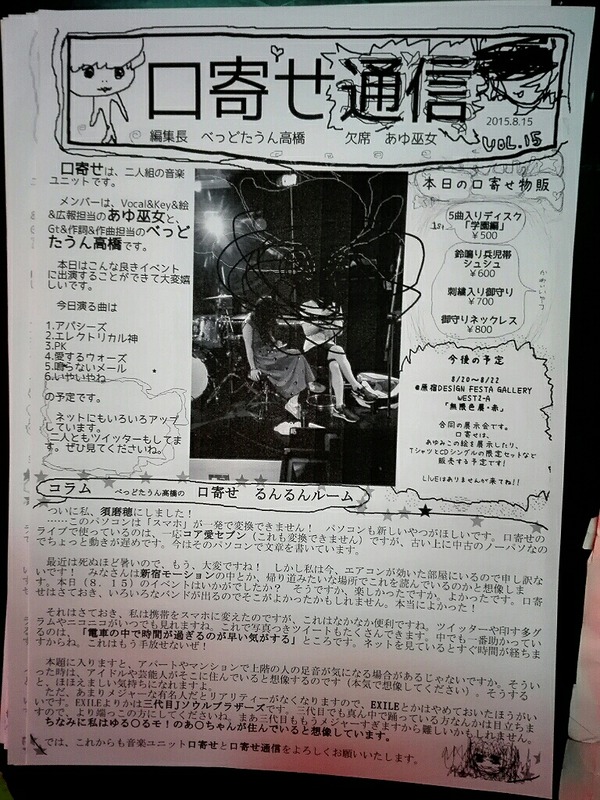 口寄せ通信
2015.8.15
編集長 べっどたうん高橋 欠席 あゆ巫女
VOL.15
口寄せは、二人組の音楽
ユニットです。
メンバーは、Vocal&Key&絵
&広報担当のあゆ巫女と、
Gt&作詞&作曲担当のべっど
たうん高橋です。
本日はこんな良きイベント
に出演することができて大変嬉
しいです。
今日演る曲は
1.アパシーズ
2.エレクトリカル神
3.PK
4.愛するウォーズ
5.鳴らないメール
6.いやいやね
の予定です。
ネットにもいろいろアップ
しています。
二人ともツイッターもしてま
す。ぜひ見てくださいね。
本日の口寄せ物販
5曲入りディスク
「学園編」
¥500
鈴鳴り兵児帯
シュシュ
¥600
刺繍入り御守り
¥700
御守りネックレス
¥800
今後の予定
8/20~8/22
@原宿DESIGN FESTA GALLERY
WEST2-A
「無限色展・赤」
合同の展示会です。
口寄せは、
あゆみこの絵を展示したり、
TシャツとCDシングルの限定セットなど
販売する予定です!
LIVEはありませんが来てね!!
コラム べっどたうん高橋の 口寄せ るんるんルーム
ついに私、須磨穂にしました!
……このパソコンは「スマホ」が一発で変換できません! パソコンも新しいやつがほしいです。口寄せの
ライブで使っているのは、一応コア愛セブン(これも変換できません)ですが、古い上に中古のノーパソなの
でちょっと動きが遅めです。今はそのパソコンで文章を書いています。
最近は死ぬほど暑いので、もう、大変ですね! しかし私は今、エアコンが効いた部屋にいるので申し訳な
いです! みなさんは新宿モーションの中とか、帰り道みたいな場所でこれを読んでいるのかと想像しま
す。本日(8.15)のイベントはいかがでしたか? そうですか、楽しかったですか。よかったです。口寄
せはさておき、いろいろなバンドが出るのでそこがよかったかもしれません。本当によかった!
それはさておき、私は携帯をスマホに変えたのですが、これはなかなか便利ですね。ツイッターや印す多グ
ラムやニコニコがいつでも見れますね。これで写真つきツイートもたくさんできます。中でも一番助かってい
るのは、「電車の中で時間が過ぎるのが早い気がする」ところです。ネットを見ているとすぐ時間が経ちま
すからね。これはもう手放せないぜ!
本題に入りますと、アパートやマンションで上階の人の足音が気になる場合があるじゃないですか。そうい
った時は、アイドルや芸能人がそこに住んでいると想像するのです(本気で想像してください)。そうする
と、ほほえましい気持ちになれますよ。
ただ、あまりメジャーな有名人だとリアリティーがなくなりますので、EXILEとかはやめておいたほうがい
いです。EXILEよりかは三代目Jソウルブラザーズです。三代目でも真ん中で踊っている方なんかは目立ちま
すので、より端っこの方にしてくださいね。まあ三代目ももうメジャーすぎますから難しいかもしれません。
ちなみに私はゆる〇るモ!のあ〇ちゃんが住んでいると想像しています。
では、これからも音楽ユニット口寄せと口寄せ通信をよろしくお願いいたします。